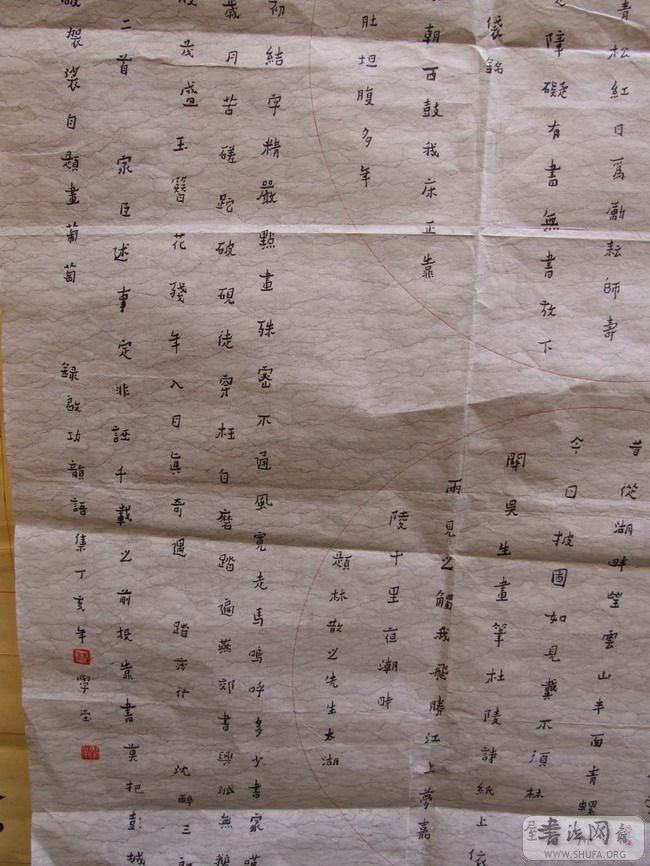 青松紅日爲勵耘師壽
障礙有書無書放下
袋銘
朝西鼓我床正靠
肚坦腹多年
昔從湖畔望雲山半面青螺
今日披圖如見戴不須林
關吳生畫筆杜陵詩紙上
雨見之觸我飛騰江上夢嘉
陵千里夜潮時
題林散之先生太湖
初結字精嚴點畫殊密不通風寬走馬嗚呼多少書家
歲月苦磋跎破硯徒穿枉自磨踏遍燕郊書興減無
茂盛玉簪花殘年入目眞奇遇 踏莎行 沈醉三
二首 家臣述事定非誣千載之前投靠書莫把彭城
破袈裟自題畫葡萄 錄啟功韻語集丁亥年
學堂
書法网
WWW.SHUFA.ORG